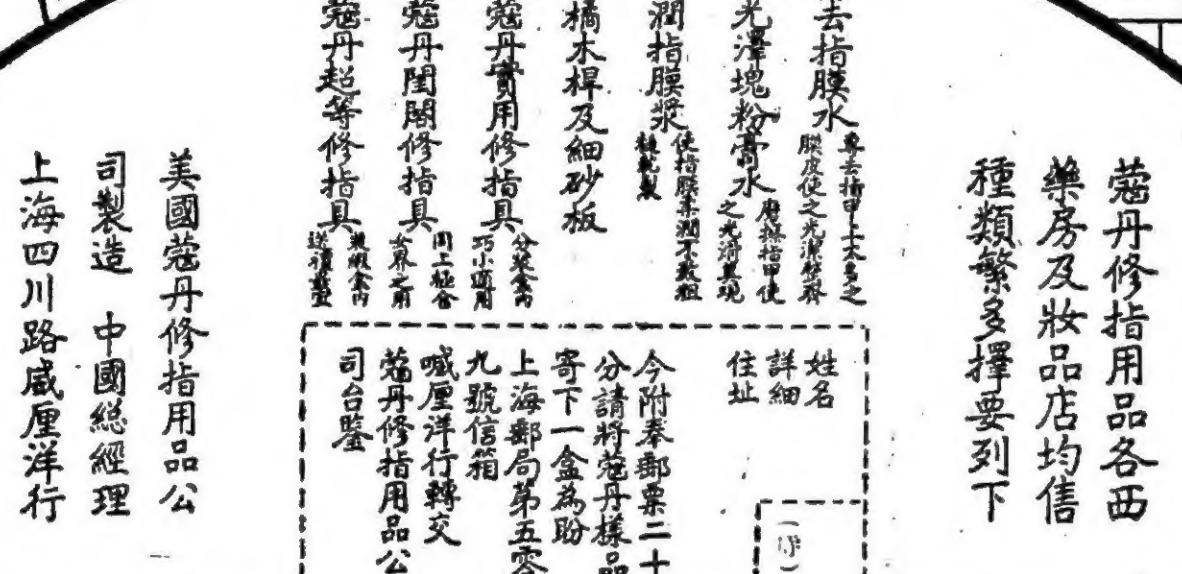 蔻丹修指用品各西
藥房及妝品店均售
種類繁多擇要列下
去指膜水
專去指甲上太多之
膜皮使之光潔整齊
光澤塊粉膏水
磨擦指甲使
之光滑美現
潤指膜漿
使指膜柔潤不致粗
糙乾裂
橘木桿及細砂板
蔻丹實用修指具
分裝盒內
巧小適用
蔻丹閨閣修指具
同上極合
女界之用
蔻丹超等修指具
裝緞盒內
送禮最宜
姓名
詳細
住址
今附奉郵票二十
分請將蔻丹樣品
寄下一盒為盼
上海郵局第五零
九號信箱
喊厘洋行轉交
蔻丹修指用品公
司台鑒
美國蔻丹修指用品公
司製造 中國總經理
上海四川路喊厘洋行